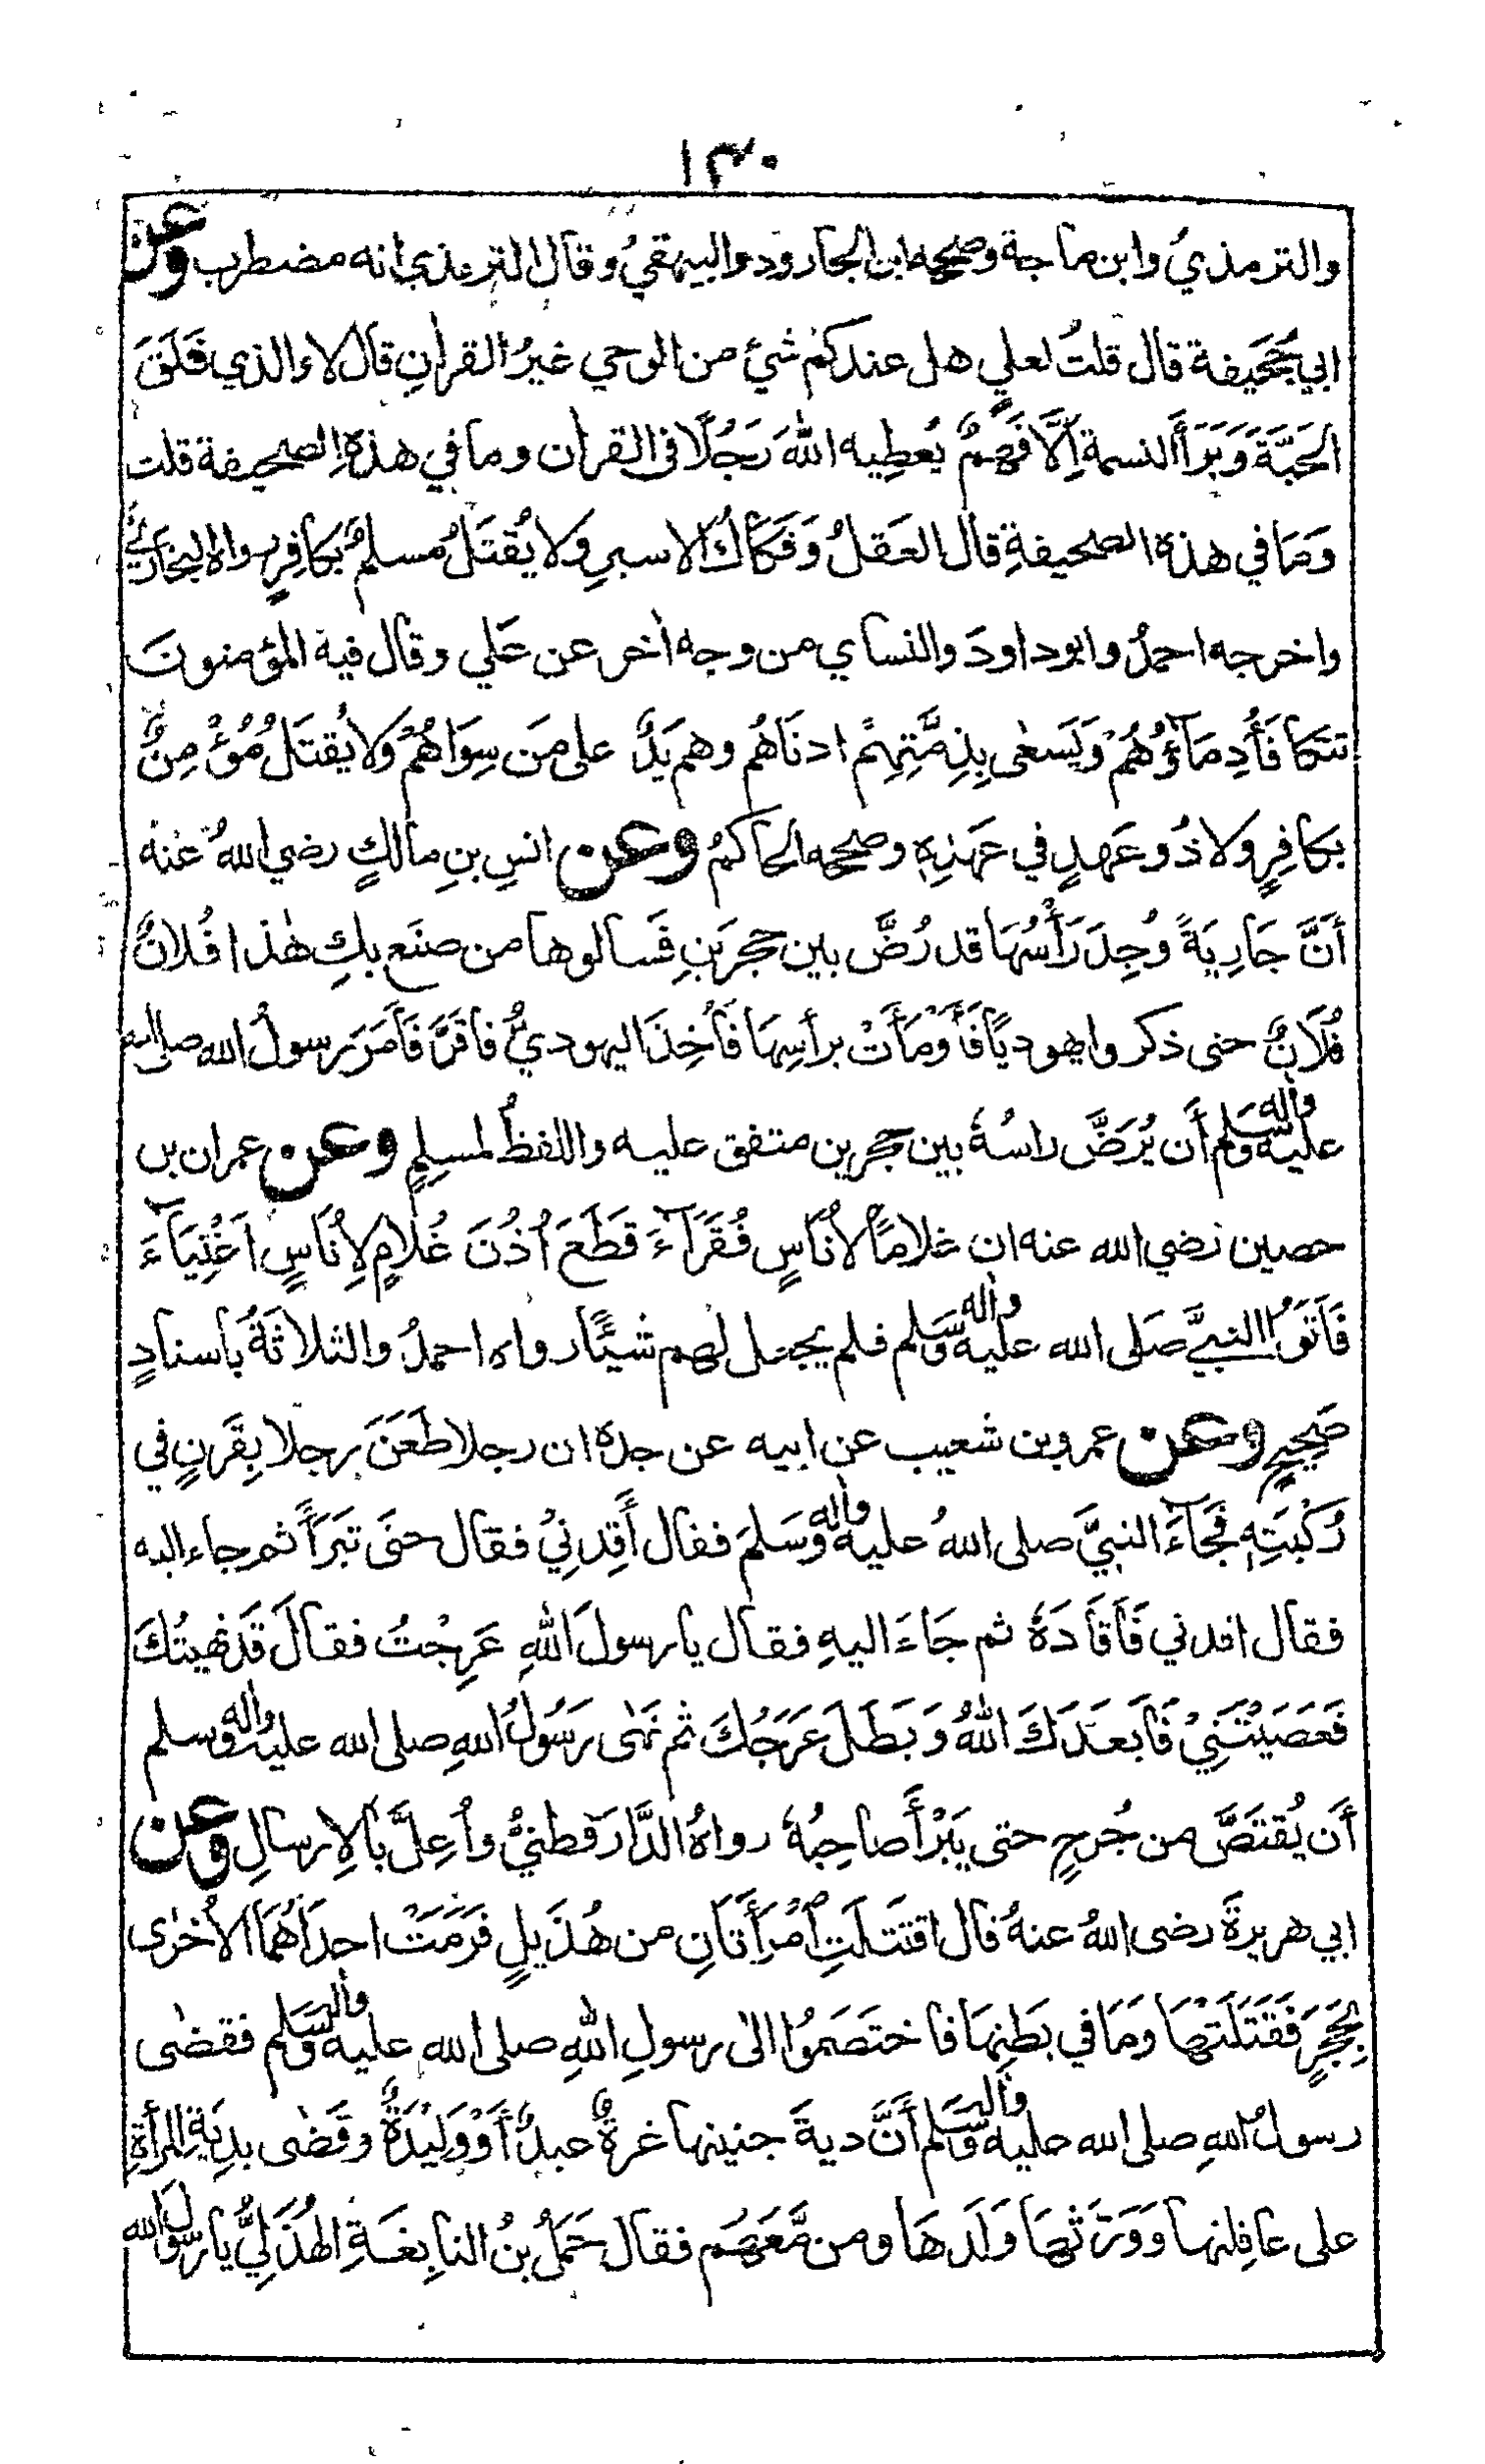 ١٣٠
والترمذيُ وابن ماجة وصححه ابن الجارود والبيهقيُ وقال الترمذي انه مضطرب وعن
ابي جُحَيفة قال قلتُ لعليٍ هل عندكم شيٌ من الوحي غيرُ القرانِ قال لا والذي فَلَقَ
الحَبَّةَ وَبَرَأَ النسمة اِلَّا فَهمٌ يُعطِيه اللهُ رَجُلًا في القران وما في هذهِ الصحيفة قلت
وَمَا في هذه الصحيفةِ قال العَقلُ وَفَكَاكُ الاسيرِ ولا يُقتَلُ مسلمٌ بكافِرٍ رواه البخاري
واخرجه احمدُ وابوداودَ والنساي من وجه اخر عن عَلي وقال فيه المؤمنونَ
تتكافَأُ دِمَآؤُهُمْ وَيَسعٰى بِذِمَّتِهِمْ ادنَاهُم وهم يَدٌ على مَن سِوَاهُمْ ولا يُقتَلُ مُؤْمِنٌ
بكافِرٍ ولا ذُو عَهدٍ في عَهْدِهٖ وصححه الحاكمُ وعن انسِ بنِ مالكٍ رضي اللهُ عنهُ
أنَّ جَارِيَةً وُجِدَ رَأْسُهَا قد رُضَّ بين حجرَينِ فَسالوها من صنَع بكِ هٰذا فُلانٌ
فُلَانٌ حتى ذكروا يهوديًا فَأَوْمَأَتْ برأسِهَا فَأُخِذَ اليهوديُّ فاقَرَّ فَأمَرَ رسولُ الله صلى الله
عليه واٰله وسلم أن يُرَضَّ راسُهُ بين حجرين متفق عليه واللفظُ لمسلِمٍ وعن عمران بن
حصين رضي الله عنه ان غلامًا لأُنَاسٍ فُقَرَآءَ قَطَعَ اُذُنَ غُلامٍ لِأُنَاسٍ اَغْنِيَآءَ
فَاَتَوُا النبيَّ صَلى الله عليه واٰله وسلم فلم يجعل لهم شيئًا رواه احمدُ والثلاثةُ باسنادٍ
صَحِيحٍ وعن عمرو بن شعيب عن ابيه عن جده ان رجلا طَعَنَ رجلا بِقَرنٍ في
رُكْبَتِهٖ فَجَآءَ النبيَّ صلى اللهُ عليه واٰله وسَلمَ فقال أَقِدْنِيْ فقال حتى تَبَرَأَ ثم جاء اليه
فقال اقدني فَأَقَادَهُ ثم جَاءَ اليهِ فقال يا رسولَ اللهِ عَرِجْتُ فقالَ قَد نهيتُكَ
فَعَصَيْتَنِيْ فَأبعَدَكَ اللهُ وَبَطَلَ عَرَجُكَ ثم نَهٰى رَسُولُ اللهِ صلى الله عليه واٰله وسلم
أَن يُقتَصَّ من جُرحٍ حتى يَبْرَأَ صاحِبُهُ رواهُ الدَّارَقطنيُّ واُعِلَّ بالاِرسالِ وعن
ابي هريرةَ رضى اللهُ عنهُ قال اقتتلَتِ امْرَأَتَانِ من هُذَيلٍ فَرَمَتْ احدٰهُمَا الاُخرٰى
بِحَجَرٍ فَقَتَلَتْهَا وَمَا في بَطنِهَا فاختصَموُا الىٰ رسولِ اللهِ صلى الله عليه واٰله وسلم فقضٰى
رسولُ اللهِ صلى الله عليه واٰله وسلم أَنَّ ديةَ جنينها غرةٌ عبدٌ أَوْ وَلِيْدَةٌ وقَضٰى بدِيَةِ المرأةِ
على عاقِلتها وَوَرَّثَهَا وَلَدَهَا ومن مَّعَهُم فقال حَمَلُ بنُ النابِغَةِ الهُذَلِيُّ يا رسُولَ الله